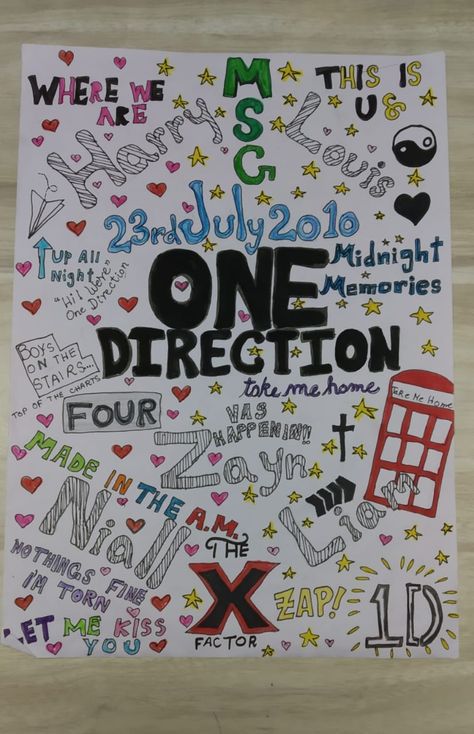 WHERE WE
ARE
MSG
THIS IS
US
Harry
Louis
23rd July 2010
UP ALL
Night
"Hi! We're"
One Direction
Midnight
Memories
ONE
DIRECTION
BOYS
ON THE
STAIRS...
TOP OF THE CHARTS
take me home
Take Me Home
FOUR
VAS
HAPPENIN!!
Zayn
MADE IN THE A.M.
Niall
Liam
NOTHINGS FINE
IM TORN
THE
X
FACTOR
ZAP!
1D
LET ME KISS
YOU